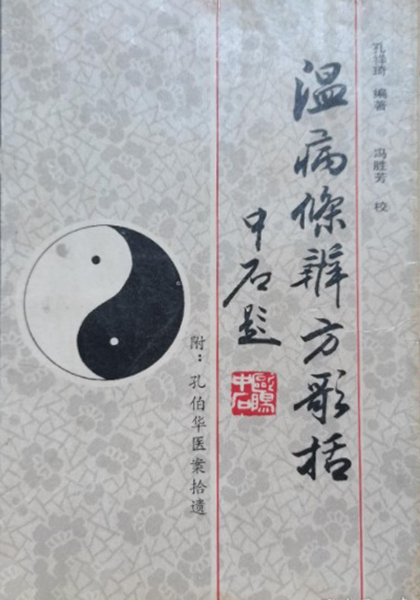 孔祥琦 编著 冯胜芳 校
温病條辨方歌括
中石题
歐陽中石
附：孔伯华医案拾遗